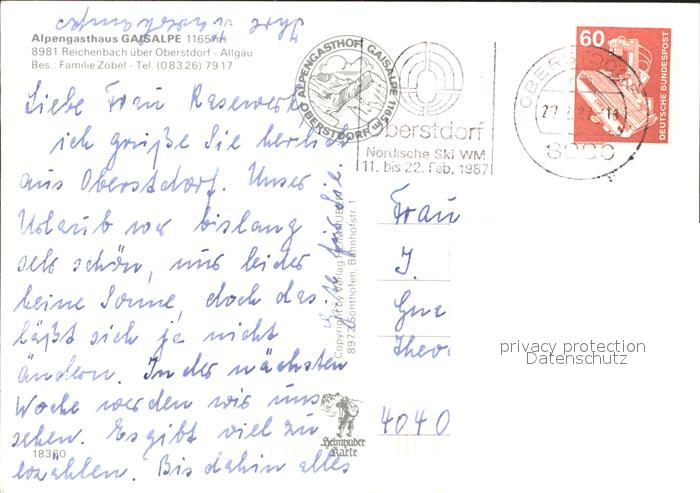 Alpengasthaus GAISALPE 1165m
8981 Reichenbach über Oberstdorf - Allgäu
Bes.: Familie Zobel - Tel. (08326) 7917
Liebe Frau
ich grüße Sie herzlich
aus Oberstdorf. Unser
Urlaub war bislang
sehr schön, nur leider
keine Sonne, doch das
läßt sich ja nicht
ändern. In der nächsten
Woche werden wir uns
sehen. Es gibt viel zu
erzählen. Bis dahin alles
Gute für Sie.
Ihre
18360
ALPENGASTHOF GAISALPE 1165
OBERSTDORF
Oberstdorf
Nordische Ski WM
11. bis 22. Feb. 1987
OBERSTDORF
8980
60
DEUTSCHE BUNDESPOST
Copyright by Verlag HEIMHUBER
8972 Sonthofen, Bahnhofstr. 1
Heimhuber
Karte
Frau
I.
Theo
4040
privacy protection
Datenschutz